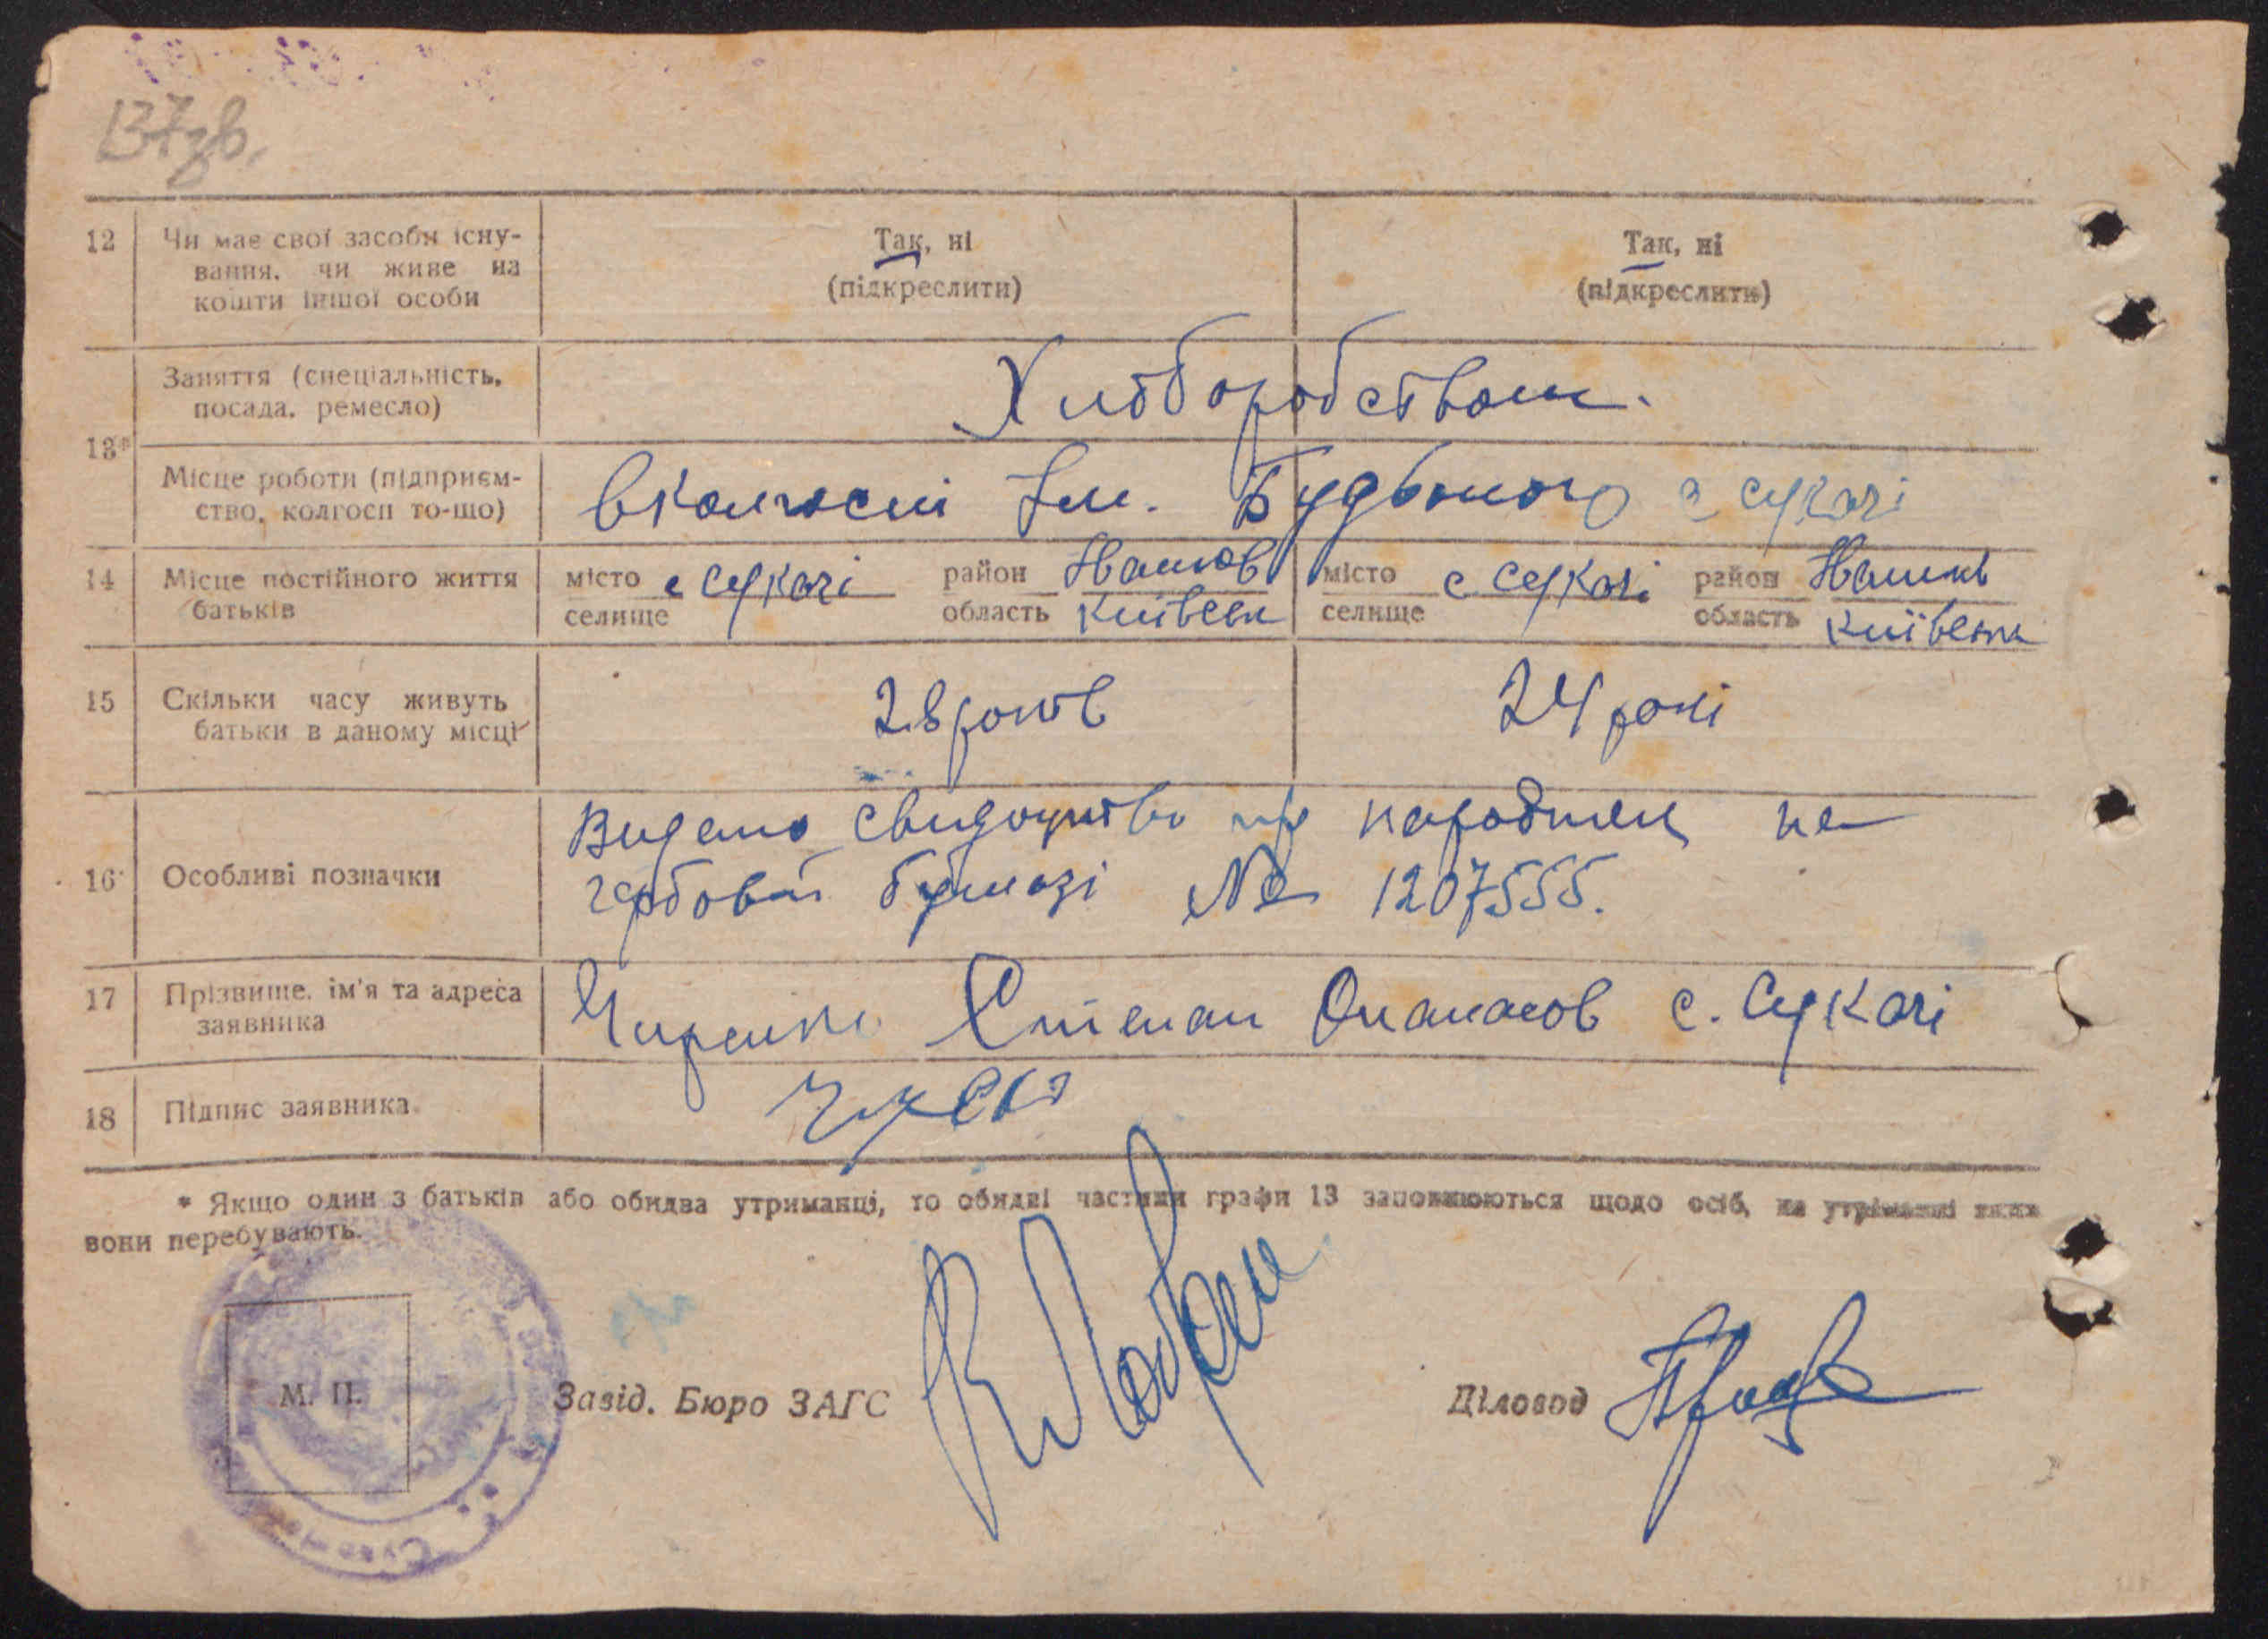 137зв.
12 Чи має свої засоби існу-
вання, чи живе на
кошти іншої особи
Так, ні
(підкреслити)
Так, ні
(підкреслити)
13*
Заняття (спеціальність,
посада, ремесло)
Хліборобством.
Місце роботи (підприєм-
ство, колгосп то-що)
вколгоспі Ім. Будьоного с Сукачі
14 Місце постійного життя
батьків
місто с Сукачі район
селище область Київськ
місто с Сукачі район
селище область Київська
15 Скільки часу живуть
батьки в даному місці
28 років
24 рокі
16 Особливі позначки
Видано свидоцтво про народжен на
гербовой бумазі № 1207555.
17 Прізвище, ім'я та адреса
заявника
Степан Опанасов с. Сукачі
18 Підпис заявника.
* Якщо один з батьків або обидва утриманці, то обидві частини графи 13 заповнюються щодо осіб, на утриманні яких
вони перебувають.
М. П.
Завід. Бюро ЗАГС
Діловод